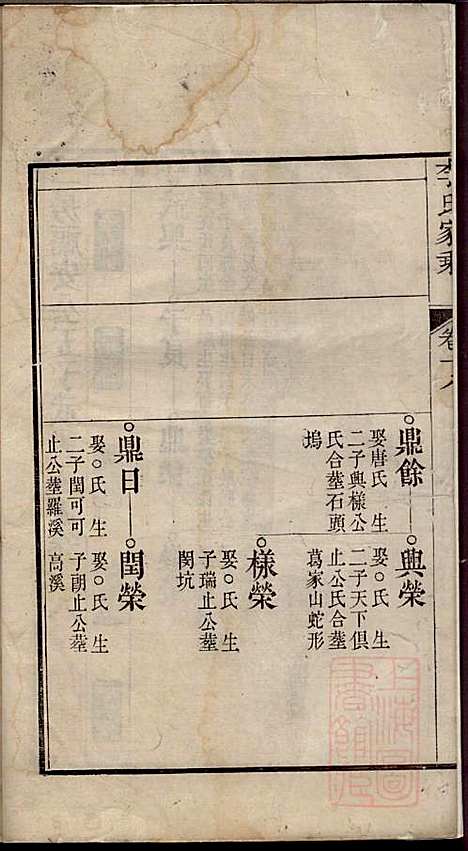 李氏家乘
卷十八
鼎餘
娶唐氏 生
二子興樣公
氏合塟石頭
塢
興榮
娶○氏 生
二子天下俱
止公氏合塟
葛家山蛇形
樣榮
娶○氏 生
子瑞止公塟
閔坑
鼎日
娶○氏 生
二子閏可可
止公塟羅溪
閏榮
娶○氏 生
子朝止公塟
高溪
上海圖書館藏